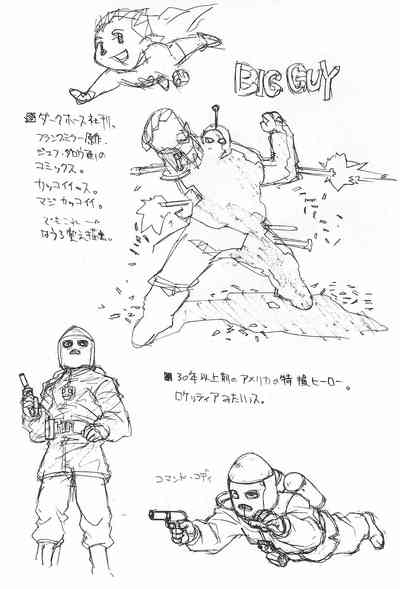 BIG GUY
ダークホース社刊。
フランクミラー原作.
ジェフ・ダロウ画の
コミックス。
カッコイイっス。
マジカッコイイ。
30年以上前のアメリカの特撮ヒーロー。
ロケッティアみたいっス。
コマンド・コディ